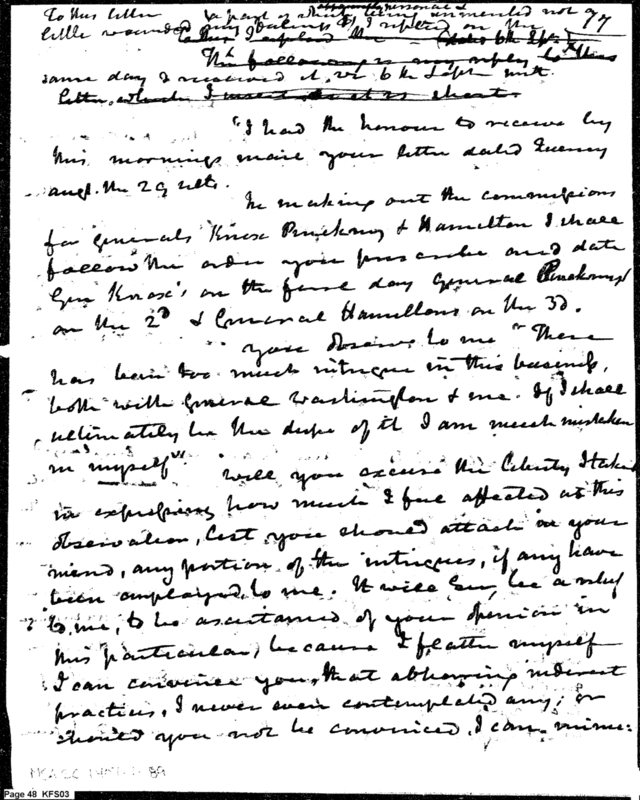 To this letter a part of which being apparently personal &
unmerited not a 77
little wounded my feelings I replied on the
To this I replied the dated 6th Sept.
The following is my reply to this
same day I received it, viz 6th Sept inst.
letter, which I insert as it is short.
"I had the honour to receive by
this mornings mail your letter dated Quincy
augt. the 29 ulto.
In making out the commissions
for generals Knox Pinckney & Hamilton I shall
follow the order you prescribe and date
Gen Knox's on the first day General Pinckneys
on the 2d & General Hamiltons on the 3d.
you observe to me "There
has been too much intrigue in this business,
both with General Washington & me. If I shall
ultimately be the dupe of it I am much mistaken
in myself" Will you excuse the liberty I take
in expressing how much I feel affected at this
observation, lest you should attach in your
mind, any portion of the intrigues, if any have
been employed, to me. It will Sir, be a relief
to me, to be ascertained of your opinion in
this particular, because I flatter myself
I can convince you, that abhorring indirect
practices, I never even contemplated any; or
should you not be convinced, I can imme:
Page 48 KFS03